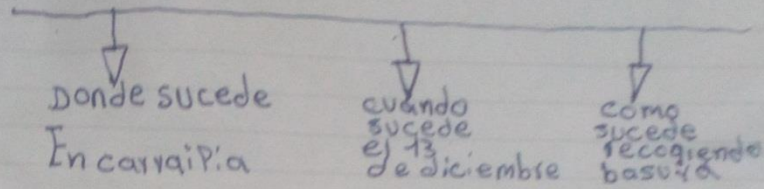 Donde sucede
En carraipia
cuándo
sucede
el 13
de diciembre
como
sucede
recogiendo
basura